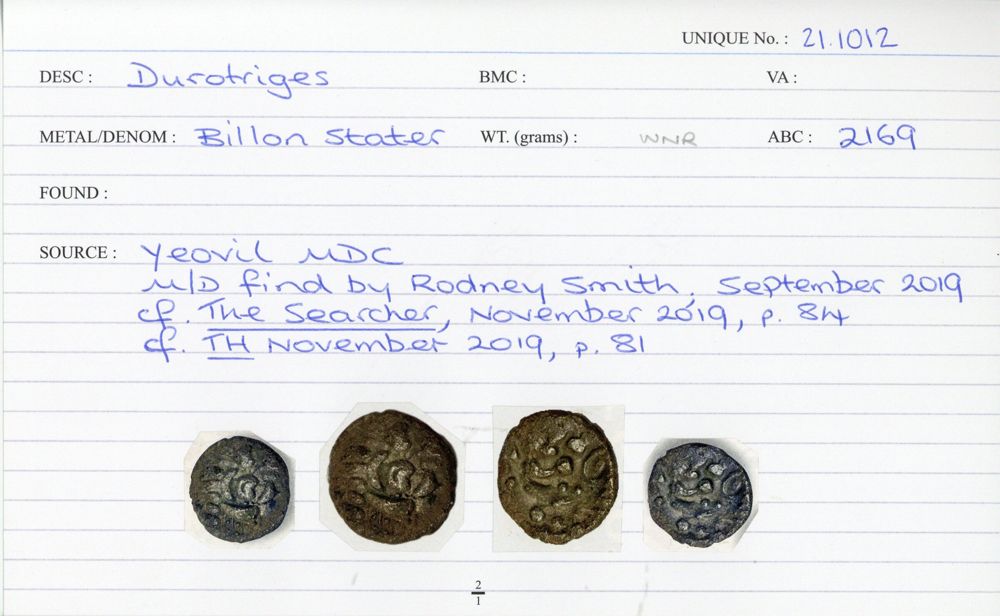 UNIQUE No. : 21.1012
DESC : Durotriges BMC : VA :
METAL/DENOM : Billon Stater WT. (grams) : WNR ABC : 2169
FOUND :
SOURCE : Yeovil MDC
M/D find by Rodney Smith, September 2019
cf. The Searcher, November 2019, p. 84
cf. TH November 2019, p. 81
2
1